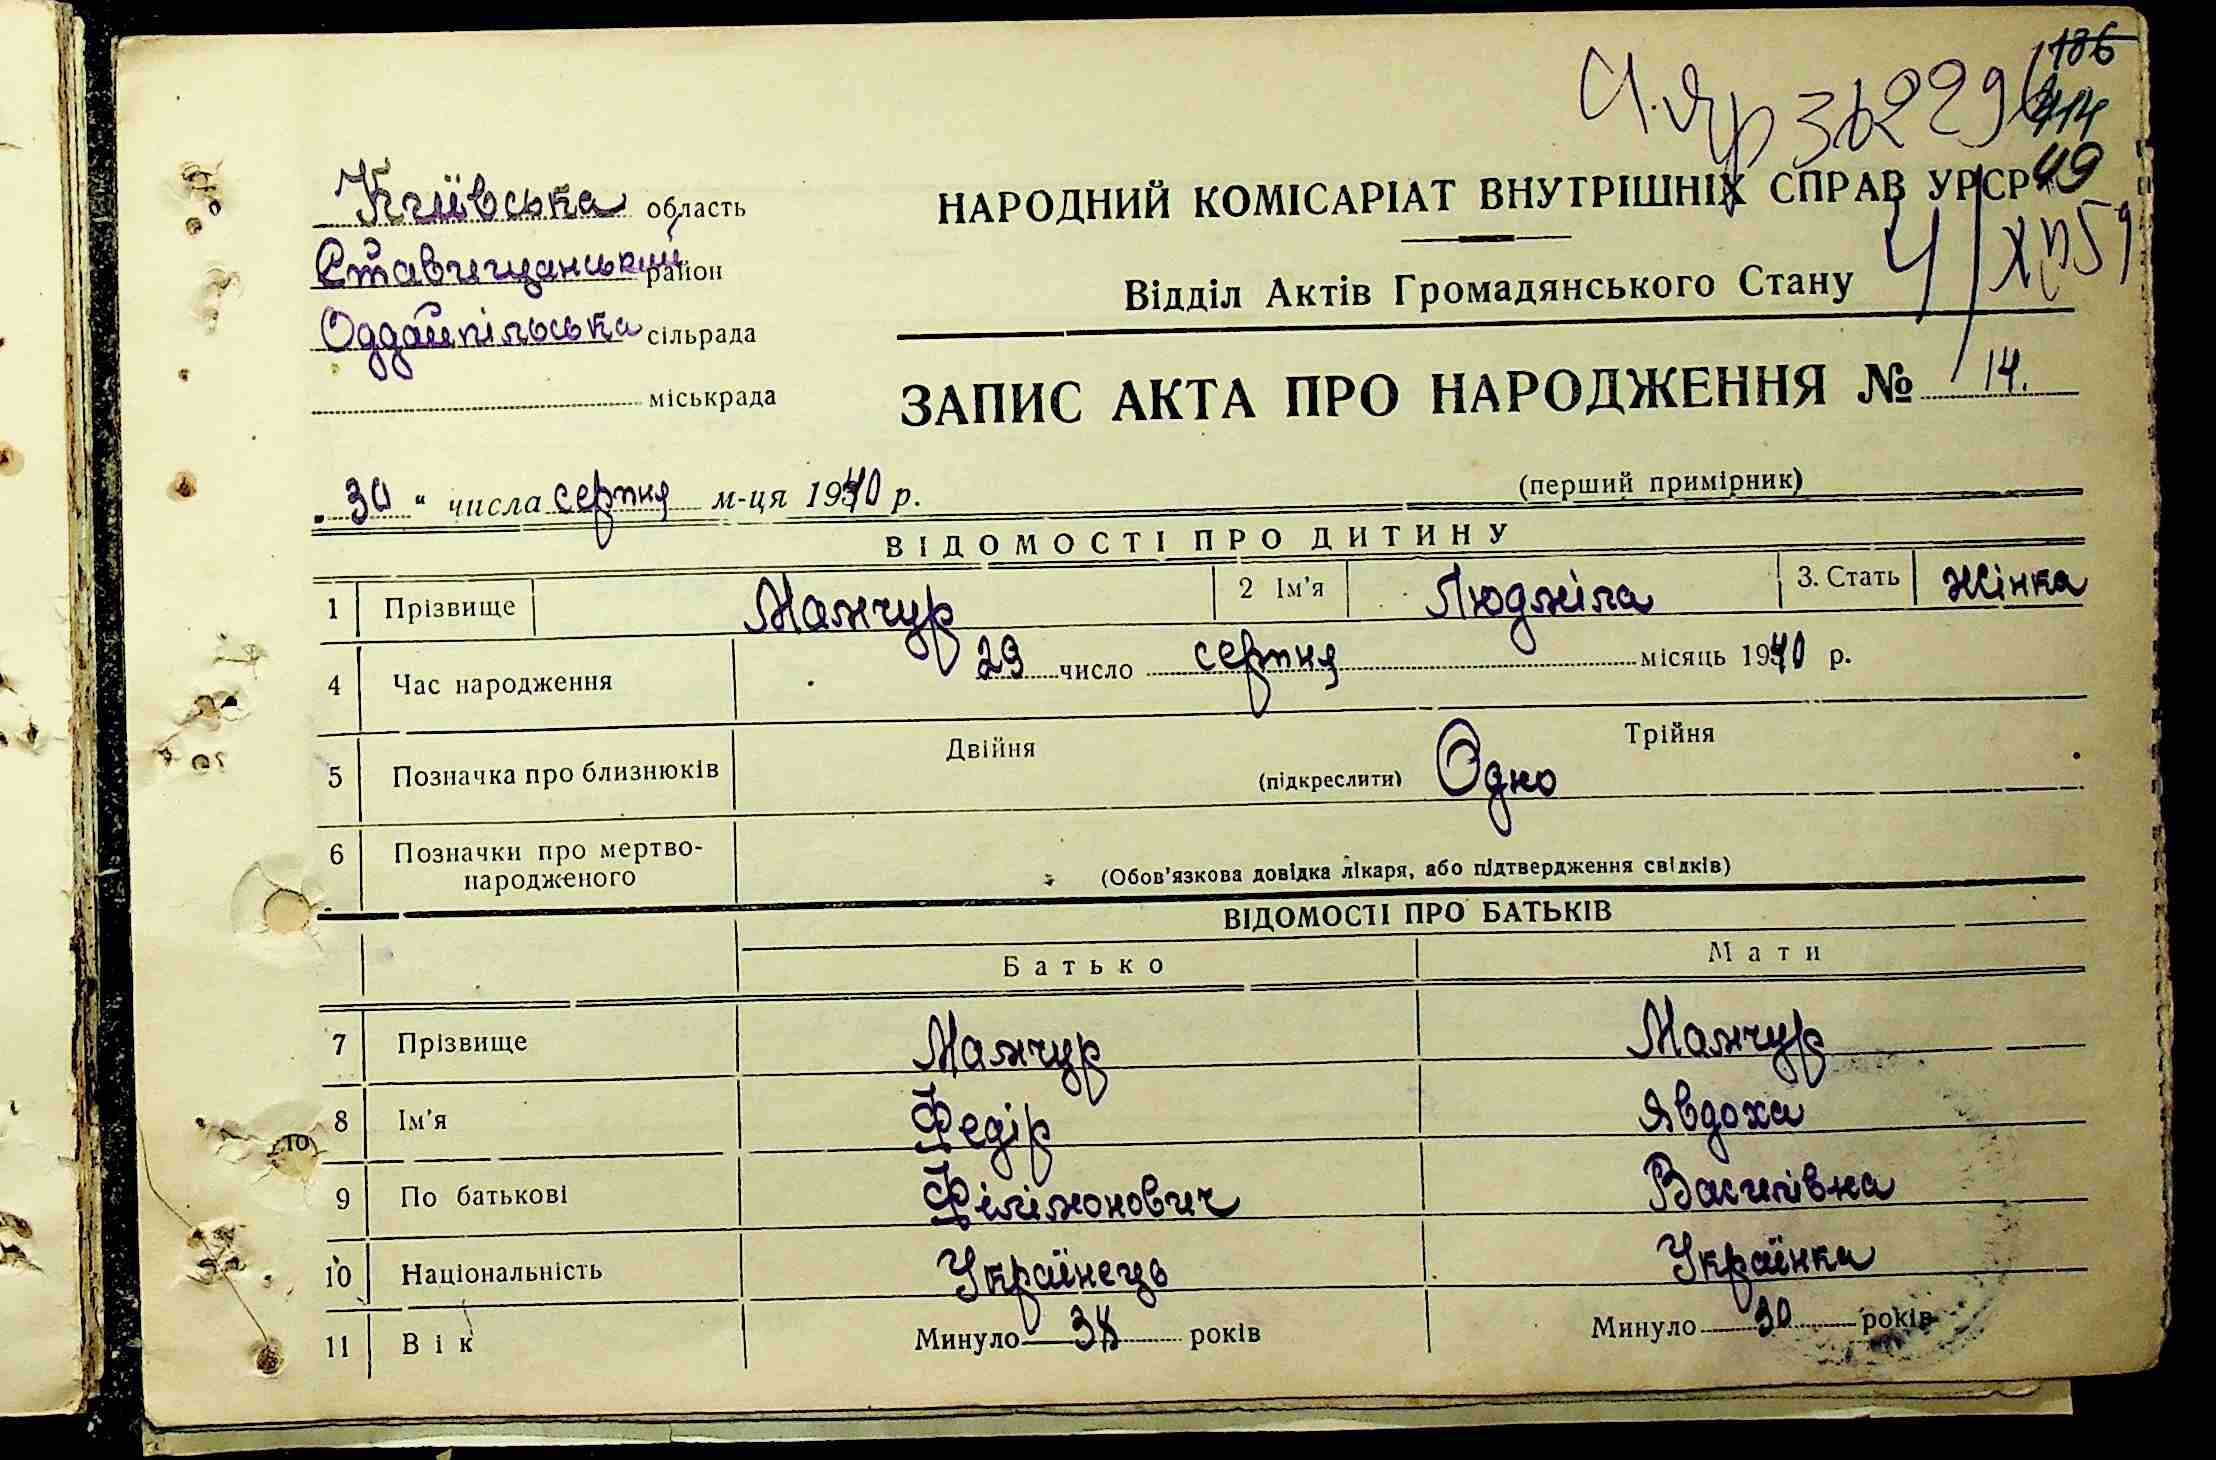 186
414
49
Київська область
Ставищанський район
Оддайпільська сільрада
міськрада
НАРОДНИЙ КОМІСАРІАТ ВНУТРІШНІХ СПРАВ УРСР
Відділ Актів Громадянського Стану
ЗАПИС АКТА ПРО НАРОДЖЕННЯ № 14.
(перший примірник)
„30“ числа серпня м-ця 1940 р.
ВІДОМОСТІ ПРО ДИТИНУ
1 Прізвище Мамчур 2 Ім'я Людміла 3. Стать жінка
4 Час народження 29 число серпня місяць 1940 р.
5 Позначка про близнюків Двійня (підкреслити) Одно Трійня
6 Позначки про мертво-
народженого (Обов'язкова довідка лікаря, або підтвердження свідків)
ВІДОМОСТІ ПРО БАТЬКІВ
Батько Мати
7 Прізвище Мамчур Мамчур
8 Ім'я Федір Явдоха
9 По батькові Філімонович Василівна
10 Національність Українець Українка
11 Вік Минуло 38 років Минуло 30 років